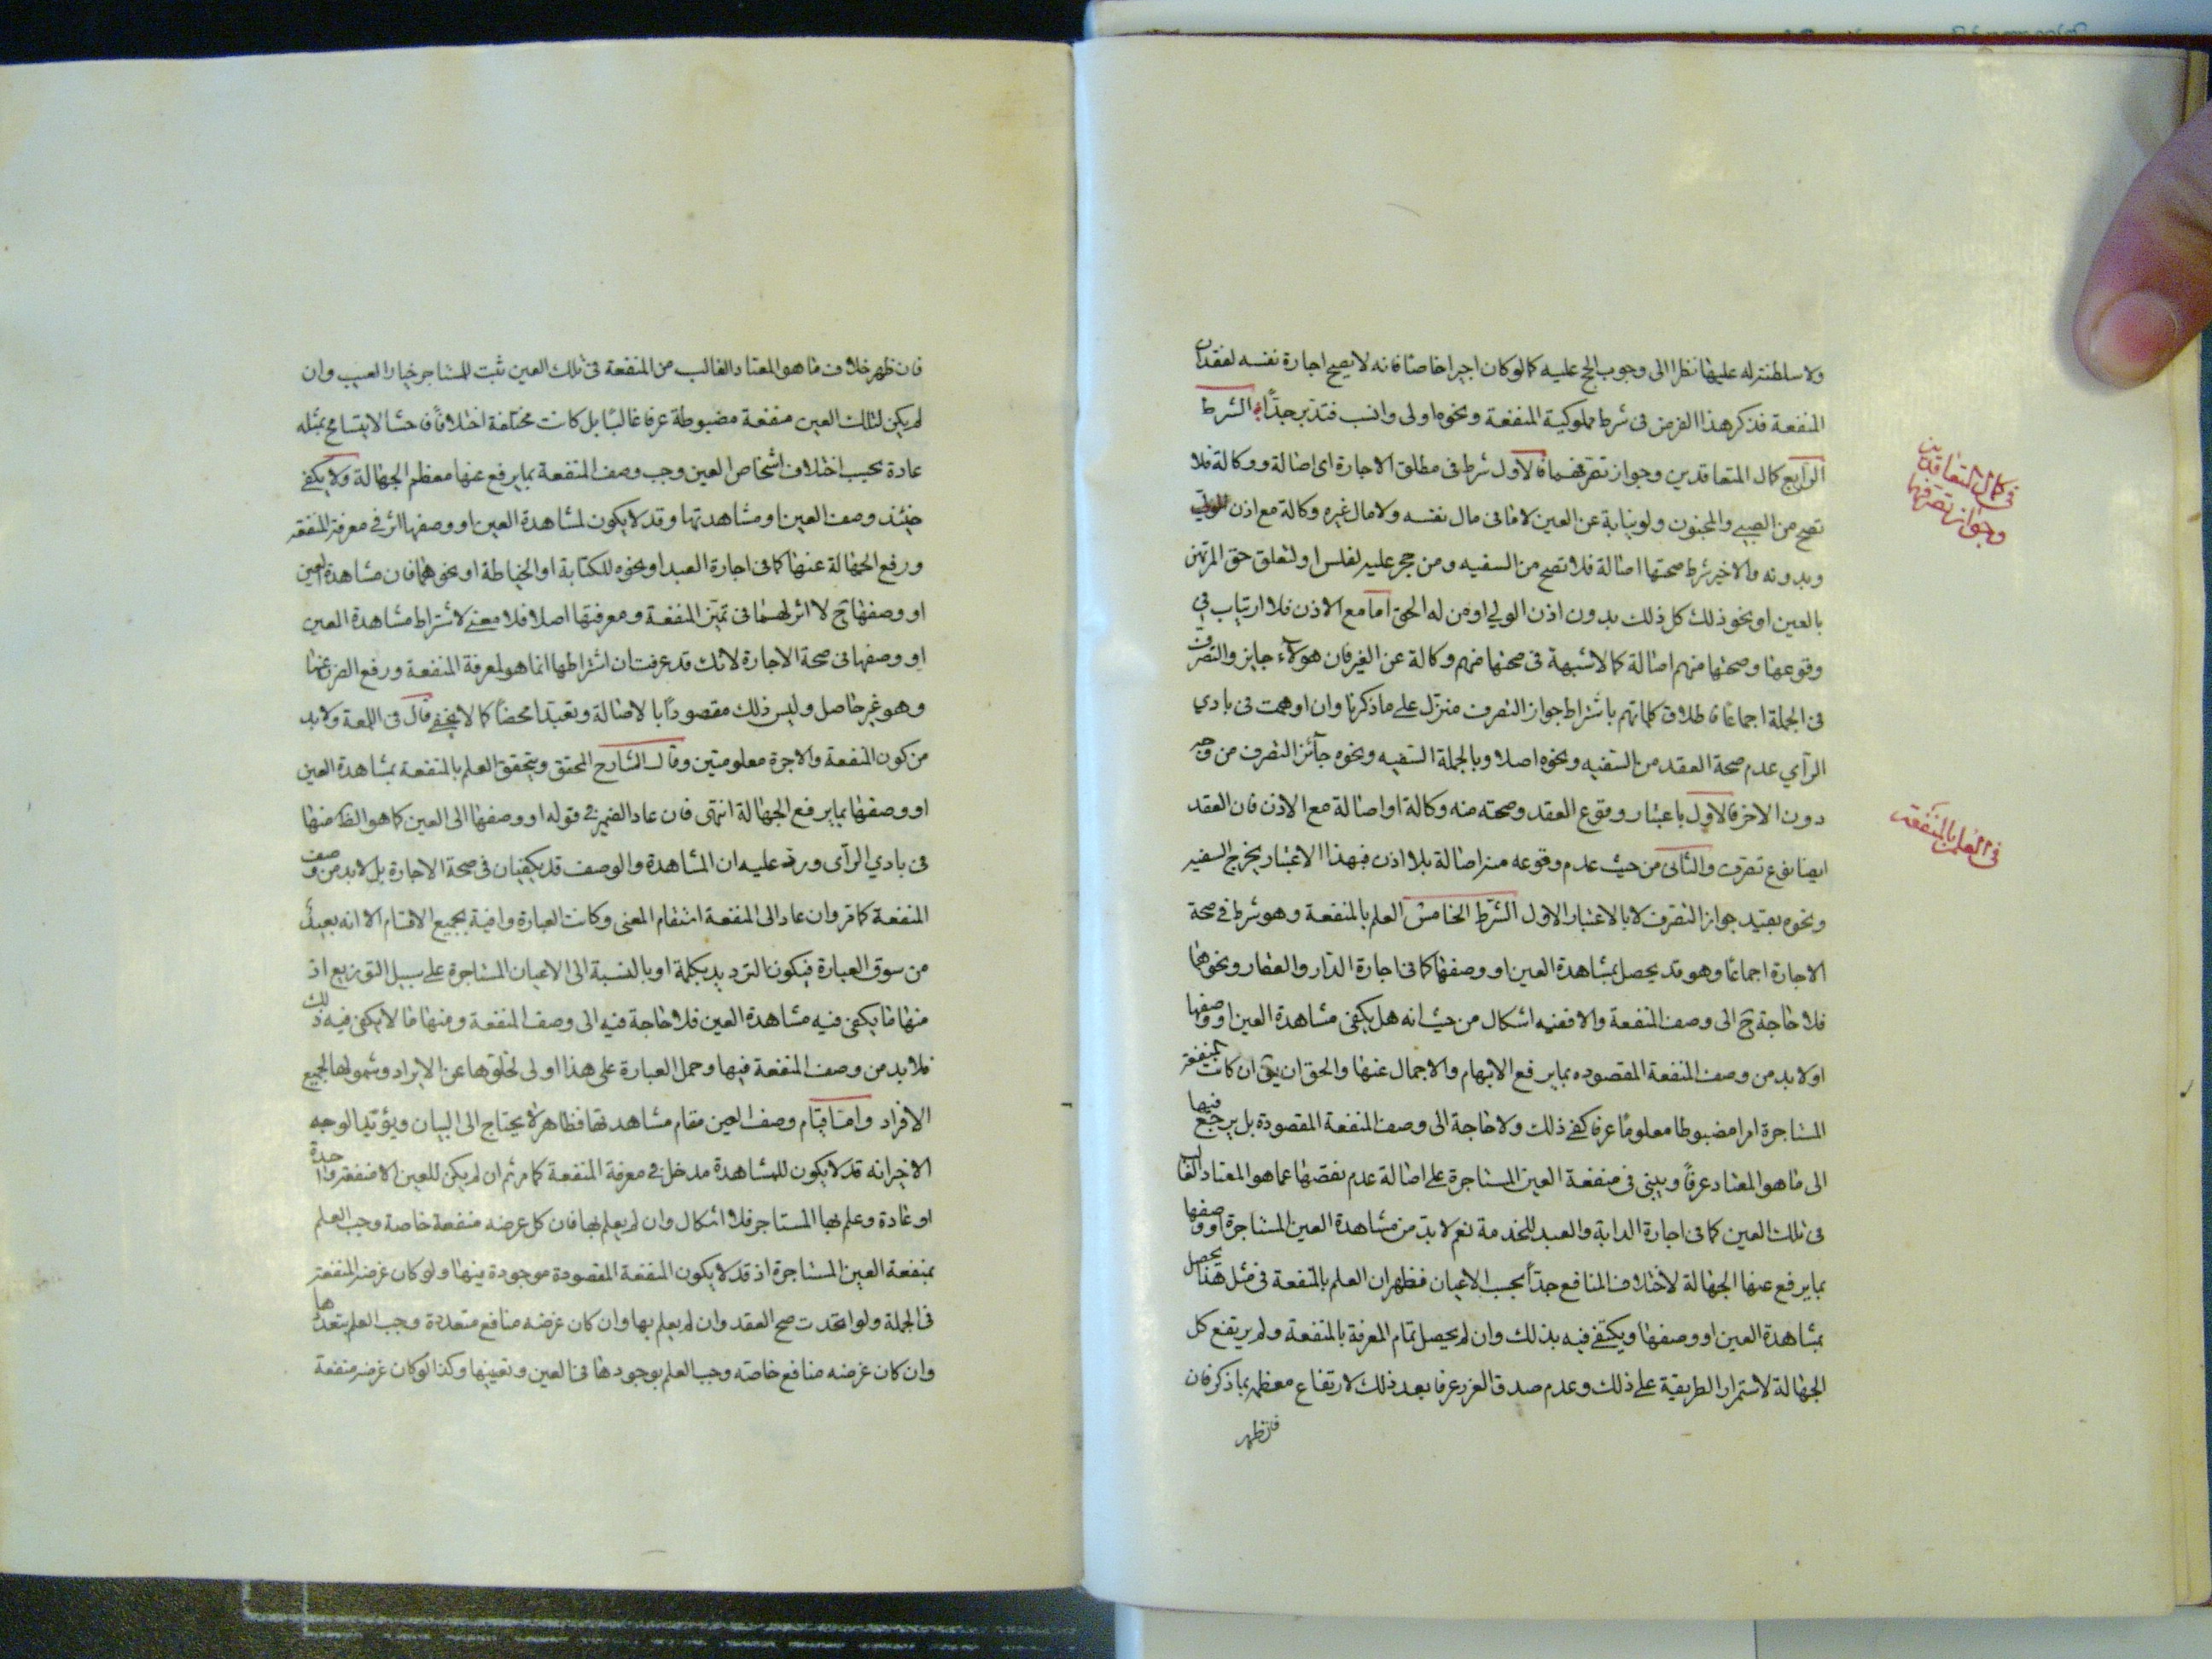 ولا سلطنة له عليها نظرا الى وجوب الحج عليه كما لو كان اجيرا خاصا فانه لا يصح اجارة نفسه لفقدان
المنفعة فذكر هذا الفرض فى شرط مملوكية المنفعة ونحوه اولى وانسب فتدبر جدّاً الشرط
الرابع كمال المتعاقدين وجواز تصرفهما فالاول شرط فى مطلق الاجارة اى اصالة ووكالة فلا
تصح من الصبي والمجنون ولو بنيابة عن العين لا فى مال نفسه ولا مال غيره وكالة مع اذن الولي
وبدونه والاخير شرط صحتها اصالة فلا تصح من السفيه ومن حجر عليه لفلس او لتعلق حق المرتهن
بالعين او نحو ذلك كل ذلك بدون اذن الولي او من له الحق اما مع الاذن فلا ارتياب في
وقوعها وصحتها منهم اصالة كما لا شبهة فى صحتها منهم وكالة عن الغير فان هولآء جايز والتصرف
فى الجملة اجماعا فاطلاق كلماتهم باشتراط جواز التصرف منزّل على ما ذكرنا وان اوهمت فى بادي
الرأي عدم صحة العقد من السفيه ونحوه اصلا وبالجملة السفيه ونحوه جآئز التصرف من وجه
دون الاخر فالاول باعتبار وقوع العقد وصحته منه وكالة او اصالة مع الاذن فان العقد
ايضا نوع تصرف والثانى من حيث عدم وقوعه منه اصالة بلا اذن فبهذا الاعتبار يخرج السفيه
ونحوه بقيد جواز التصرف لا بالاعتبار الاول الشرط الخامس العلم بالمنفعة وهو شرط في صحة
الاجارة اجماعا وهو قد يحصل بمشاهدة العين او وصفها كما فى اجارة الدار والعقار ونحوهما
فلا حاجة ح الى وصف المنفعة والا ففيه اشكال من حيث انه هل يكفى مشاهدة العين او وصفها
او لا بد من وصف المنفعة المقصوده بما يرفع الابهام والاجمال عنها والحق ان يق ان كانت المنفعة
المستاجرة امرا مضبوطا معلومًا عرفا كفى ذلك ولا حاجة الى وصف المنفعة المقصودة بل يرجع فيها
الى ما هو المعتاد عرفاً ويبنى فى منفعة العين المستاجرة على اصالة عدم نقصها عما هو المعتاد الغالب
فى تلك العين كما فى اجارة الدابة والعبد للخدمة نعم لا بدّ من مشاهدة العين المستاجرة او وصفها
بما يرفع عنها الجهالة لاختلاف المنافع جدّاً بحسب الاعيان فظهر ان العلم بالمنفعة فى مثل هذا يحصل
بمشاهدة العين او وصفها ويكتفى فيه بذلك وان لم يحصل تمام المعرفة بالمنفعة ولم يرتفع كل
الجهالة لاستمرار الطريقة على ذلك وعدم صدق الغرر عرفا بعد ذلك لارتفاع معظمه بما ذكر فان
فان ظهر
فى كمال المتعاقدين
وجواز تصرفهما
فى العلم بالمنفعة
فان ظهر خلاف ما هو المعتاد الغالب من المنفعة فى تلك العين ثبت للمستاجر خيار العيب وان
لم يكن لتلك العين منفعة مضبوطة عرفا غالبًا بل كانت مختلفة اختلافًا فاحشا لا يتسامح بمثله
عادة بحسب اختلاف اشخاص العين وجب وصف المنفعة بما يرفع عنها معظم الجهالة ولا يكفى
حينئذ وصف العين او مشاهدتها وقد لا يكون لمشاهدة العين او وصفها اثر في معرفة المنفعة
ورفع الجهالة عنها كما فى اجارة العبد او نحوه للكتابة او الخياطة او نحوهما فان مشاهدة العين
او وصفها ح لا اثر لهما فى تميّز المنفعة ومعرفتها اصلا فلا معنى لاشتراط مشاهدة العين
او وصفها فى صحة الاجارة لانك قد عرفت ان اشتراطها انما هو لمعرفة المنفعة ورفع الغرر عنها
وهو غير حاصل وليس ذلك مقصوداً بالاصالة وتعبدا محضاً كما لا يخفى قال فى اللمعة ولا بد
من كون المنفعة والاجرة معلومتين وقال الشارح المحقق ويتحقق العلم بالمنفعة بمشاهدة العين
او وصفها بما يرفع الجهالة انتهى فان عاد الضمير في قوله او وصفها الى العين كما هو الظ منها
فى بادي الرأى ورد عليه ان المشاهدة والوصف قد يكفيان فى صحة الاجارة بل لا بد من وصف
المنفعة كما مر وان عاد الى المنفعة استقام المعنى وكانت العبارة وافية بجميع الاقسام الا انه بعيد
من سوق العبارة فيكون الترديد بكلمة او بالنسبة الى الاعيان المستاجرة على سبيل التوزيع اذ
منها ما يكفى فيه مشاهدة العين فلا حاجة فيه الى وصف المنفعة ومنها ما لا يكفى فيه ذلك
فلا بد من وصف المنفعة فيها وحمل العبارة على هذا اولى لخلوّها عن الايراد وشمولها لجميع
الافراد وامّا قيام وصف العين مقام مشاهدتها فظاهر لا يحتاج الى البيان ويؤيّد الوجه
الاخير انه قد لا يكون للمشاهدة مدخل في معرفة المنفعة كما مر ثم ان لم يكن للعين الا منفعة واحدة
او عادة وعلم بها المستاجر فلا اشكال وان لم يعلم بها فان كل غرضه منفعة خاصة وجب العلم
بمنفعة العين المستاجرة اذ قد لا يكون المنفعة المقصودة موجودة فيها ولو كان غرضه المنفعة
فى الجملة ولو اتحدت صح العقد وان لم يعلم بها وان كان غرضه منافع متعددة وجب العلم بتعددها
وان كان غرضه منافع خاصته وجب العلم بوجودها فى العين وتعيينها وكذا لو كان غرضه منفعة